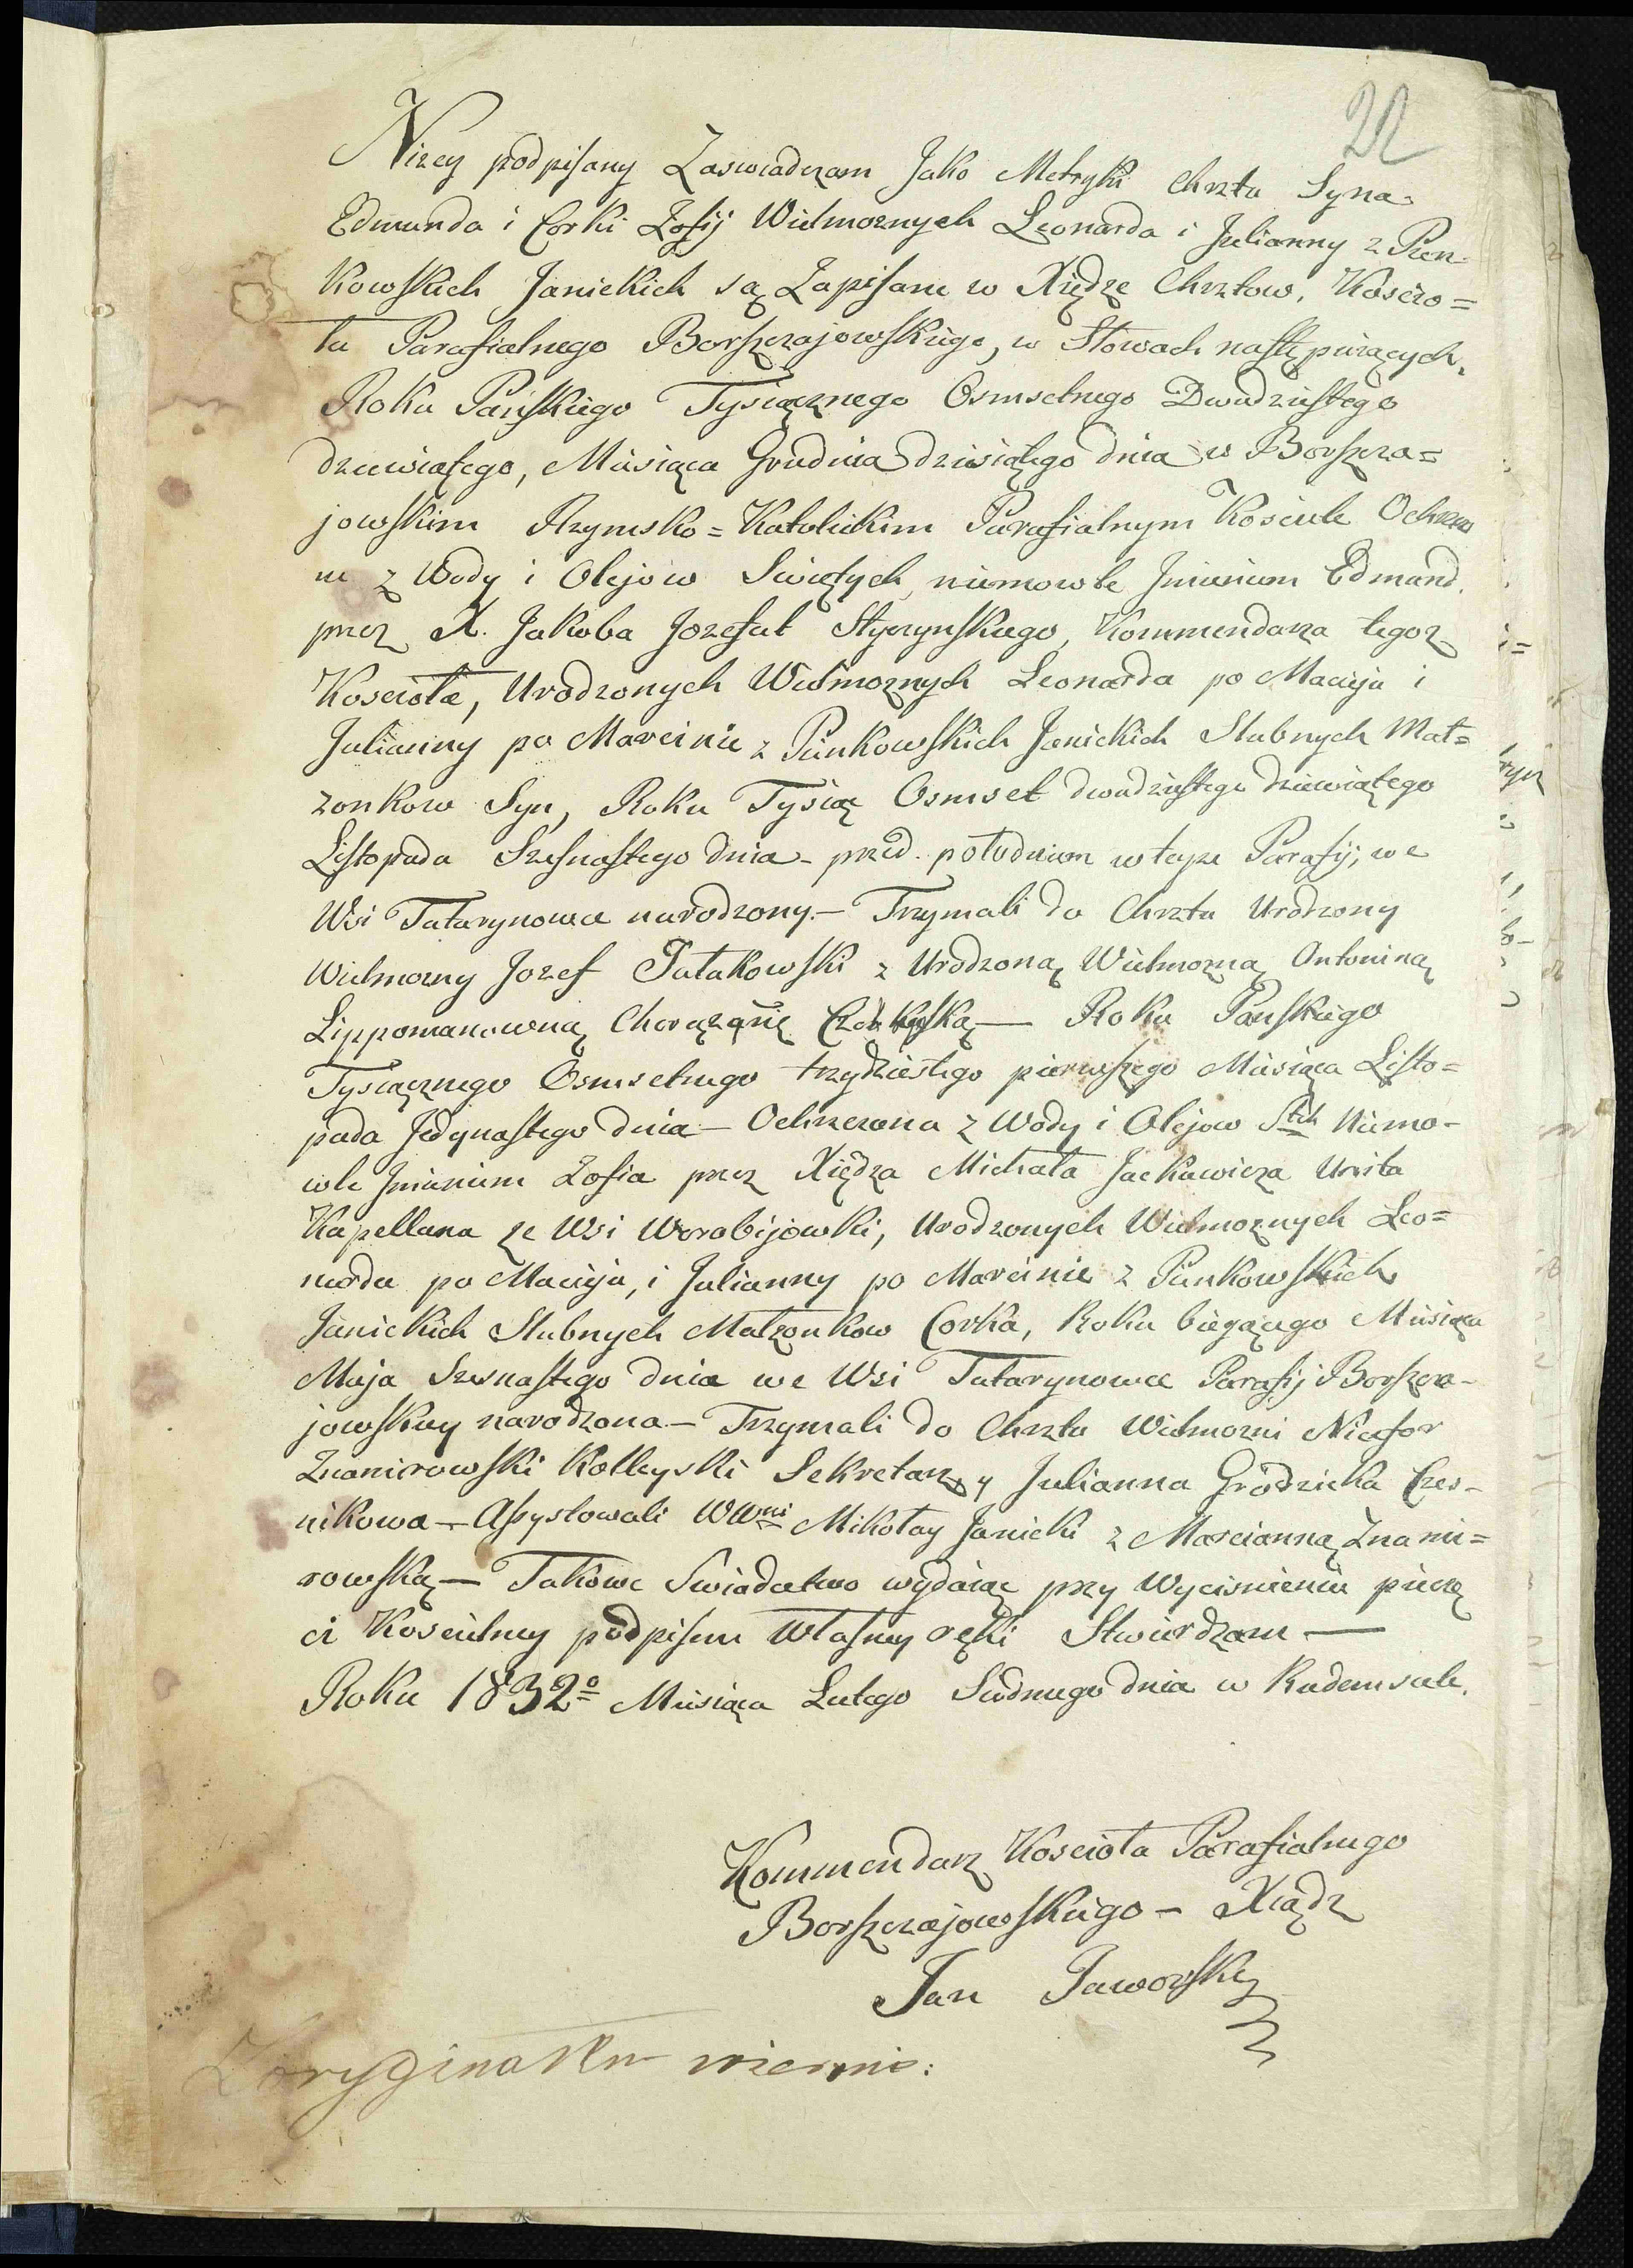 22
Nizey podpisany Zaswiadczam Jako Metryki Chrztu Syna
Edmunda i Corki Zofij Wielmoznych Leonarda i Julianny z Pien-
kowskich Janickich są Zapisane w Xiędze Chrztow, Koscio=
ła Parafialnego Borszczajowskiego, w Słowach następuiących,
Roku Pańskiego Tysiącznego Osmsetnego Dwudziestego
dziewiątego, Miesiąca Grudnia dziesiątego dnia w Borszcza=
jowskim Rzymsko=Katolickim Parafialnym Kosciele Ochrzczo
ne z Wody i Olejow Swiętych, niemowle Jmieniem Edmund.
przez X. Jakoba Jozefat Styczynskiego, Kommendarza tegoz
Koscioła, Urodzonych Wielmoznych Leonarda po Macieju i
Julianny po Marcinie z Pienkowskich Janickich Slubnych Mał=
zonkow Syn, Roku Tysiąc Osmset dwudziestego dziewiątego
Listopada Szesnastego dnia - przed południem w teyze Parafij, we
Wsi Tatarynowce narodzony. - Trzymali do Chrztu Urodzony
Wielmozny Jozef Pułakowski z Urodzoną Wielmozną Antoniną
Lippomanowną Chorążanię - Roku Panskiego
Tysiącznego Osmsetnego trzydziestego pierwszego Miesiąca Listo=
pada Jedynastego dnia - Ochrzczona z Wody i Olejow Stch Niemo-
wle Jmieniem Zofia przez Xiędza Michała Jackiewicza Unita
Kapellana ze Wsi Worobijowki, Urodzonych Wielmoznych Leo=
narda po Macieju, i Julianny po Marcinie z Pienkowskich
Janickich Slubnych Małzonkow Corka, Roku biegącego Miesiąca
Maja Szesnastego dnia we Wsi Tatarynowce Parafij Borszcza-
jowskiey narodzona - Trzymali do Chrztu Wielmozni Nicefor
Znamirowski Kolleyski Sekretarz, y Julianna Grodzicka Czes-
nikowa - Assystowali WWni Mikołay Janicki z Marcianną Znami=
rowską - Takowe Swiadectwo wydaiąc przy Wycisnieniu pieczę
ci Koscielney podpisem Własney ręki Stwierdzam -
Roku 1832o Miesiąca Lutego Siodmego dnia w Rudemsiele.
Kommendarz Kosciola Parafialnego
Borszczajowskiego - Xiądz
Jan Jaworsky
Z oryginałem wiernie: